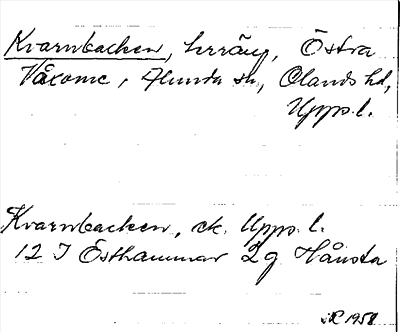 Kvarnbacken, terräng, Östra
Våxome, Alunda sn, Olands hd,
Upps. l.
Kvarnbacken, ek. Upps. l.
12 I Östhammar 2g Hånsta
1958